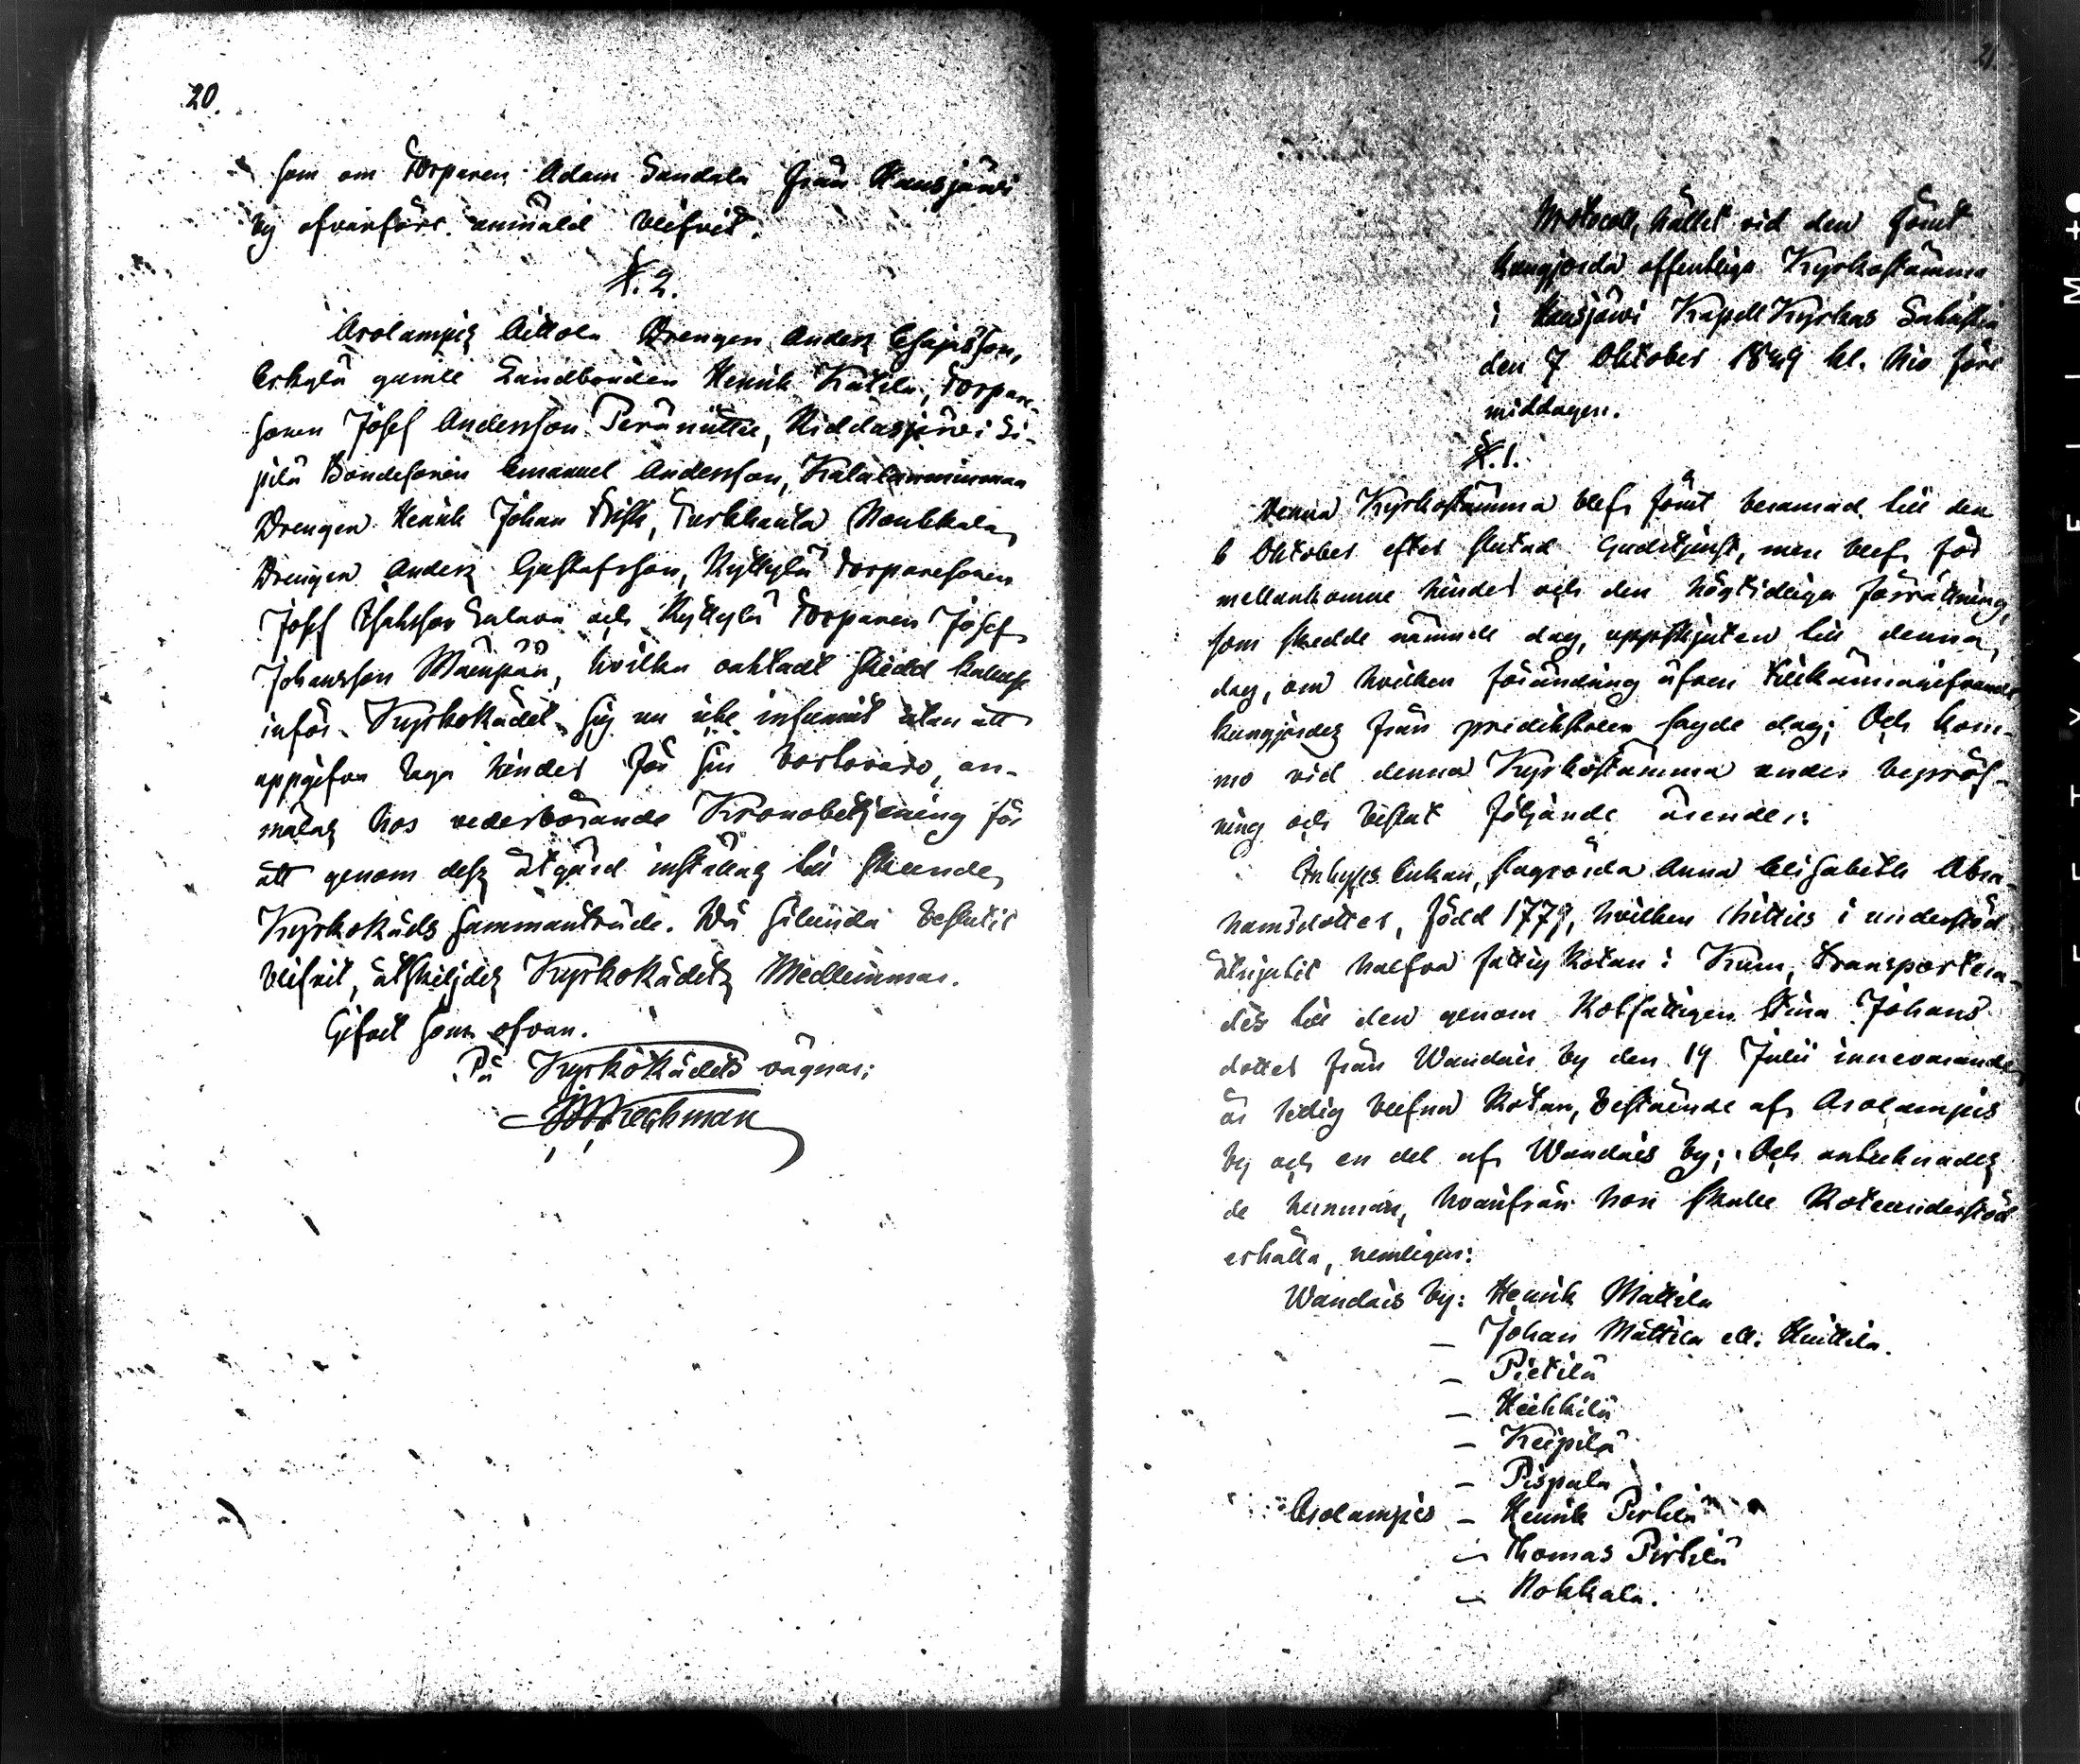 20.
som om Torparen Adam Sandala från Hausjärvi
by ofvanföre anmäld blifvit.
§. 2.
Arolampiz Aittola Drengen Anderz Esajasson,
Erkylä gamle Landbonden Henrik Kätilä, Torpare-
sonen Josef Andersson Peräniittu, Riddasjärvi Si-
pilä Bondesonen Emanuel Andersson,
Drengen Henrik Johan Frisk, Turkhauta Noukkala
Drengen Anderz Gustafsson, Ryttylä Torparesonen
Josef Isaksson Salava och Ryttylä Torparen Josef
Johansson Mäenpää, hvilka oaktadt skedd kallelse
inför Kyrkorådet sig nu icke infunnit utan att
uppgifva laga hinder för sin bortovaro, an-
mälaz hos vederbörande Kronobetjening för
att genom desz åtgärd inställaz till skeende
Kyrkoråds sammanträde. Då sålunda beslutit
blifvit, åtskiljdez Kyrkorådetz Medlemmar.
Gifvet som ofvan.
På Kyrkorådets vägnar:
21.
Protocoll, hållet vid den Ermt
kungjorda offentliga Kyrkostämma
i Hausjärvi Kapell Kyrkas Sakristia
den 7 Oktober 1849 kl. Nio före
middagen.
§. 1.
Denna Kyrkostämma blef beramad till den
6 Oktober efter slutad Gudstjenst, men blef för
mellankomne hinder och den högtidliga förrättning,
som skedde nämnde dag, uppskjuten till denna
dag, om hvilken förändring äfven
kungjordez från predikstolen sagde dag; Och kom-
mo vid denna Kyrkostämma under bepröf-
ning och beslut följande ärender:
Enkan, Anna Elisabeth Abra-
hamsdotter, född 1779, hvilken hittils i understöd
åtnjutit halfva fattig Rotan i Kum, Transportera-
des till den genom Rotfattigen Stina Johans-
dotter från Wandais by den 19 Julii innevarande
år ledig blefna Rotan, bestående af Arolampis
by och en del af Wandais by; Och antecknadez
de hemman, hvarifrån hon skulle Roteunderstöd
erhålla, nemligen:
Wandais by: Henrik Mattila
— Johan Mattila ell. Huittila.
— Pietilä
— Heikkilä
— Keipilä
— Pispala
Arolampis — Henrik Pirtilä
— Thomas Pirtilä
— Nokkala.